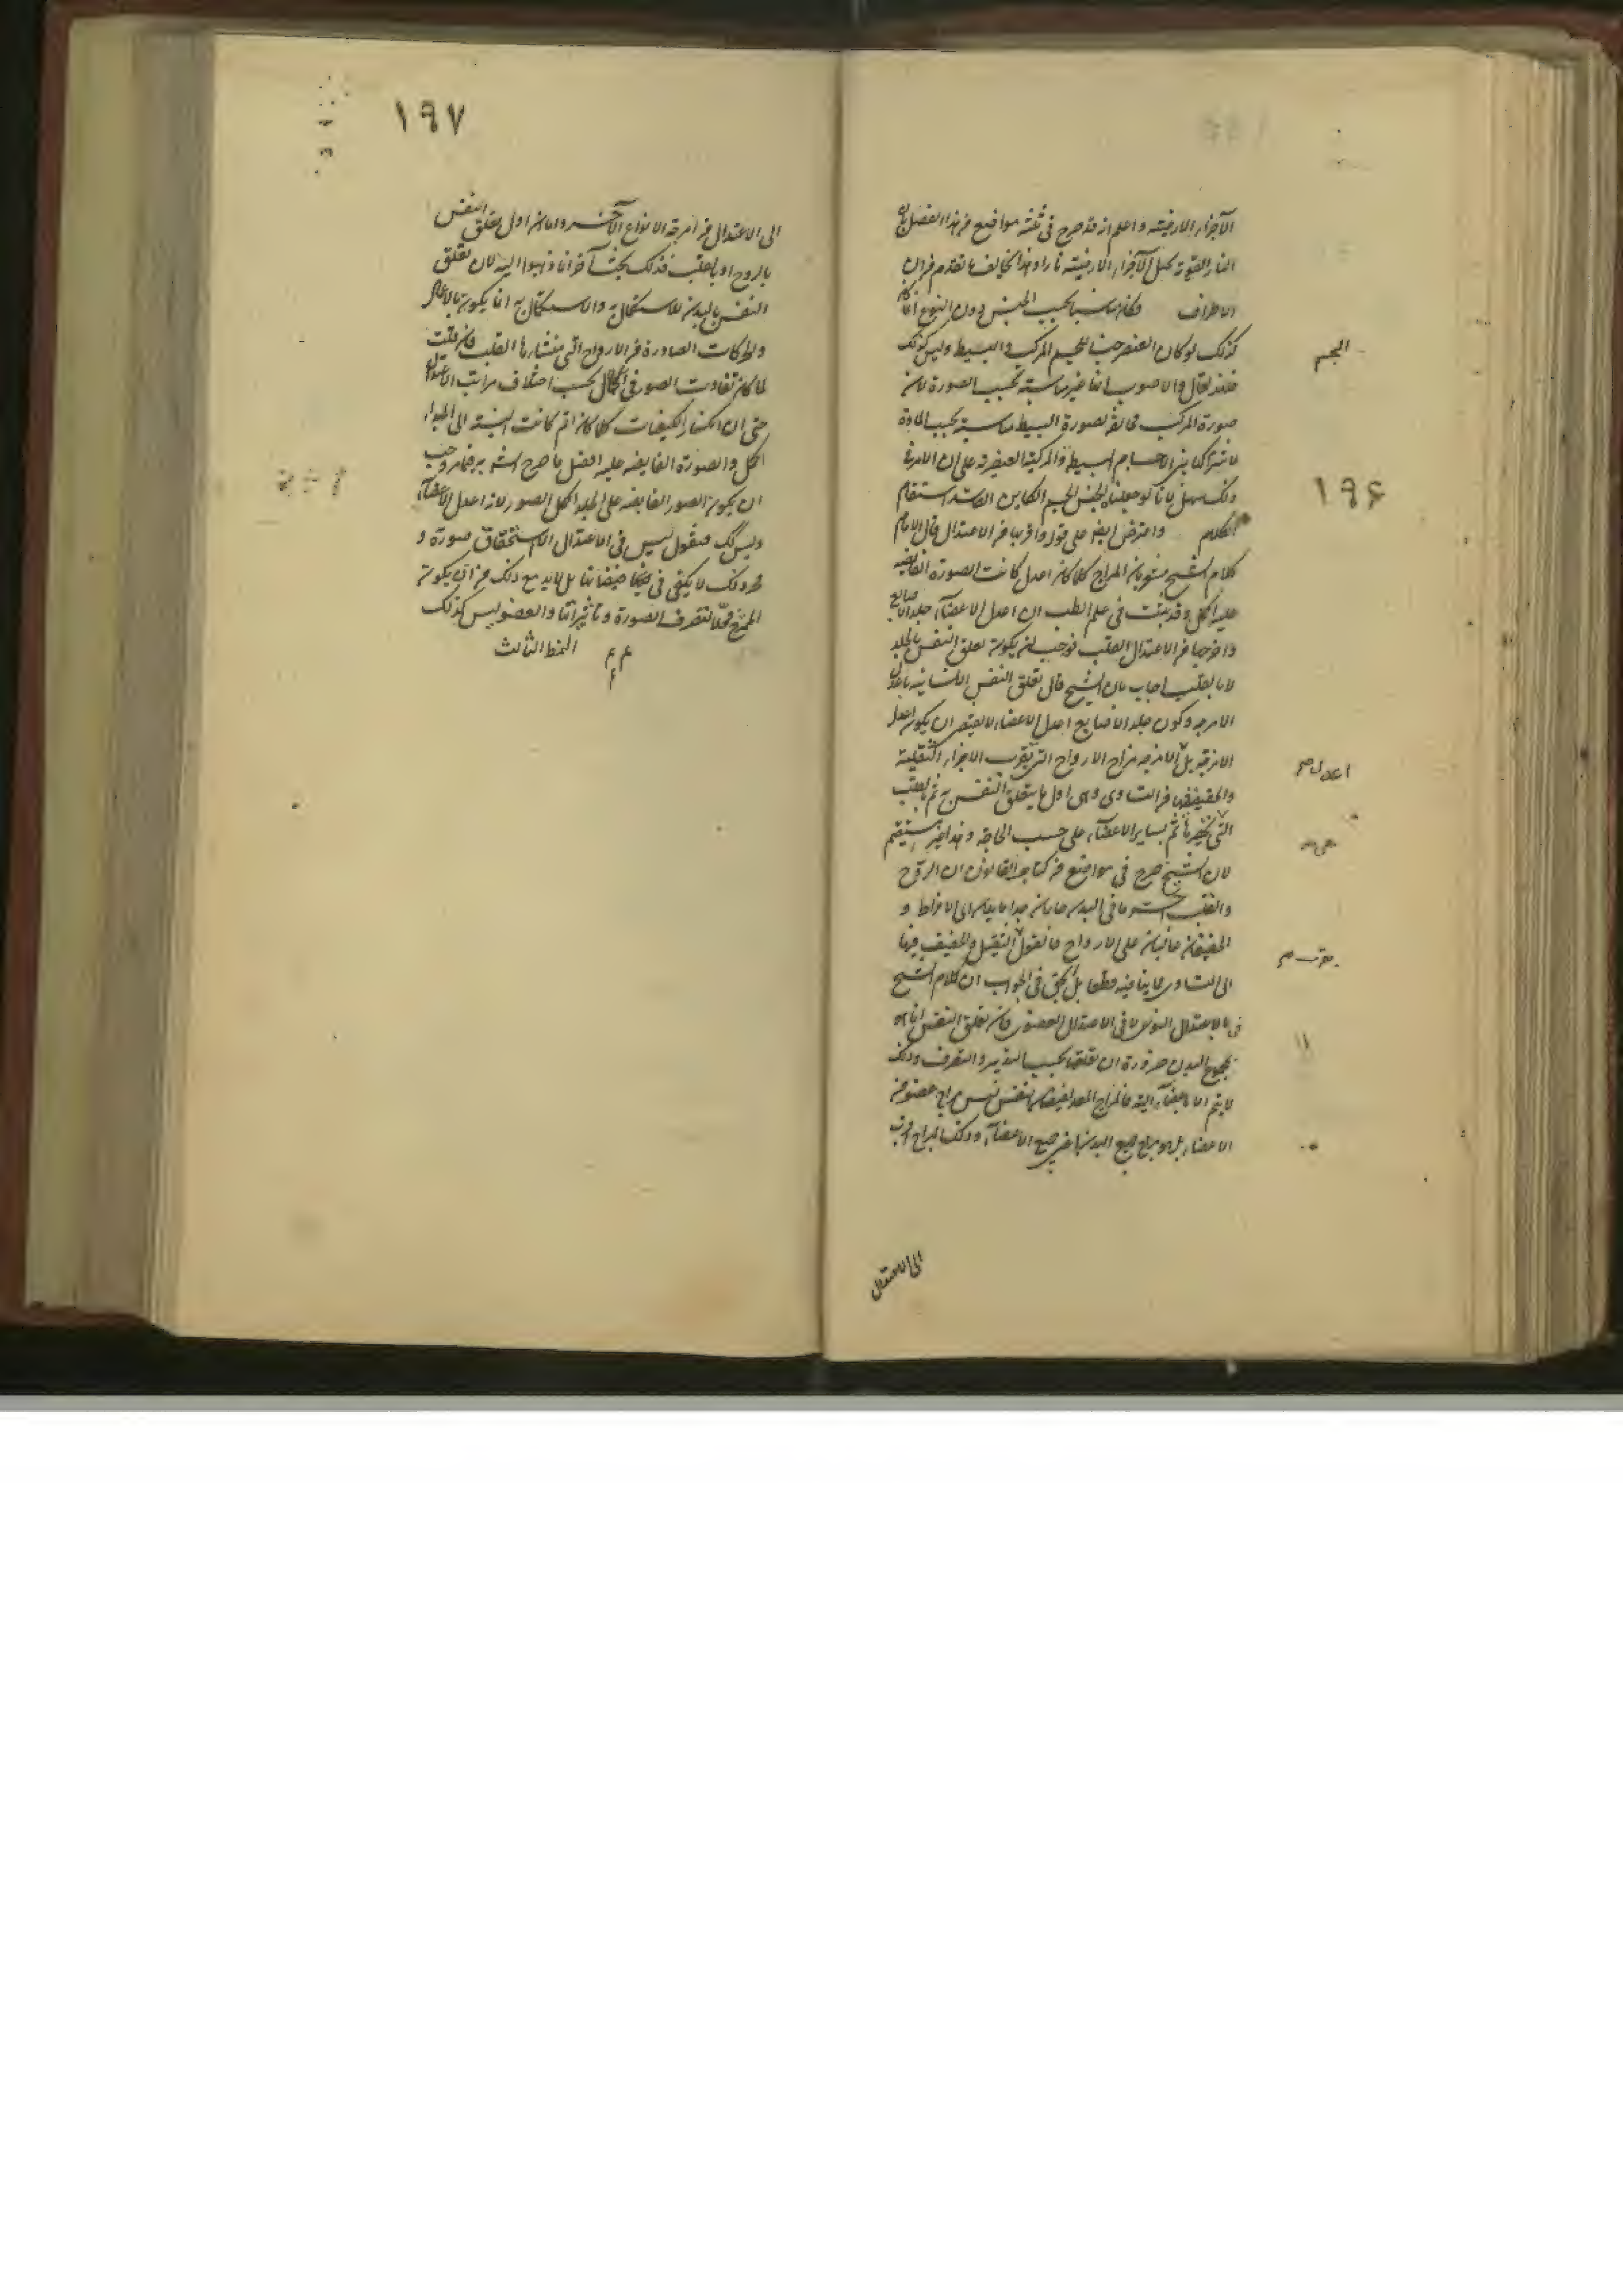 الأجزاء الارضية واعلم انه قد صرح فى ثلثة مواضع من هذا الفصل بان
النار القوية تحيل الأجزاء الارضية نارا وهذا يخالف ما تقدم من ان
الاطراف وكان مناسبا بحسب الجنس دون النوع انما كان
كذلك لو كان العنصر جنسا للجسم المركب والبسيط وليس كذلك
الجسم
فلقد يقال والاصوب انها غير مناسبة بحسب الصورة لان
صورة المركب مخالفة لصورة البسيط مناسبة بحسب المادة
لاشتراكها بين الاجسام البسيطة والمركبة العنصرية على ان الامر فى
ذلك سهل لانا لو جعلنا الجنس الجسم الكاين الفاسد استقام
١٩۶
الكلام واعترض ايضا على قوله واقربها من الاعتدال قال الامام
كلام الشيخ مشعر بان المزاج كلما كان اعدل كانت الصورة الفايضة
عليه اكمل وقد ثبت فى علم الطب ان اعدل الاعضاء جلد الاصابع
واخرجها من الاعتدال القلب فوجب ان يكون تعلق النفس بالجلد
لا بالقلب اجاب بان الشيخ قال تعلق النفس الانسانية باعدل
الامزجة وكون جلد الاصابع اعدل الاعضاء لا يقتضى ان يكون اعدل
الامزجة بل الامزجة مزاج الارواح التى تقرب الاجزاء الثقيلة
اعدل صح
والخفيفة فيها من التساوى وهى اول ما يتعلق النفس به ثم بالقلب
التى ثم بساير الاعضاء على حسب الحاجة وهذا غير مستقيم
لان الشيخ صرح فى مواضع من كتاب القانون ان الروح
والقلب ما فى البدن حاران جدا مايلان الى الافراط و
الخفيفان غالبان على الارواح فالقول الثقيل والخفيف فيها
بقرب صح
الى التساوى مما ينافيه قطعا بل الحق فى الجواب ان كلام الشيخ
فى الاعتدال النوعى لا فى الاعتدال العضوى فان تعلق النفس انما هو
بمجموع البدن ضرورة ان تعلقها بحسب التدبير والتصرف وذلك
لا يتم الا بالاعضاء الآلية فالمزاج المعد لفيضان النفس ليس مزاج عضو من
الاعضاء بل هو مزاج جميع البدن جميع الاعضاء وذلك المزاج اقرب
الى الاعتدال
١٩٧
الى الاعتدال من امزجة الانواع الآخر واما ان اول تعلق النفس
بالروح او بالقلب فذلك بحث آخر انما ذهبوا اليه لان تعلق
النفس بالبدن للاستكمال به والاستكمال به انما يكون بالافعال
والحركات الصادرة من الارواح التى منشاءها القلب فان قلت
لما كان تفاوت الصور فى الكمال بحسب اختلاف مراتب الاعتدال
حتى ان انكسار الكيفيات كلما كان اتم كانت النسبة الى المبدأ
اكمل والصورة الفايضة عليه افضل ما صرح الش به فيما مر وجب
ان يكون الصور الفايضة على الجلد اكمل الصور لانه اعدل الاعضاء
وليس كك فنقول ليس فى الاعتدال الا استحقاق صورة و
مجرد ذلك لا يكفى فى فيضانها بل لابد مع ذلك من ان يكون
الممتزج محلا لتصرف الصورة وتاثيراتها والعضو ليس كذلك
النمط الثالث